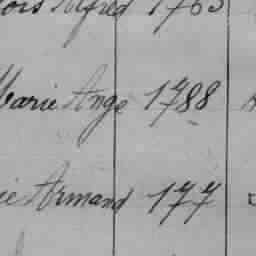 Alfred 1763
Marie Ange 1788
Armand 177